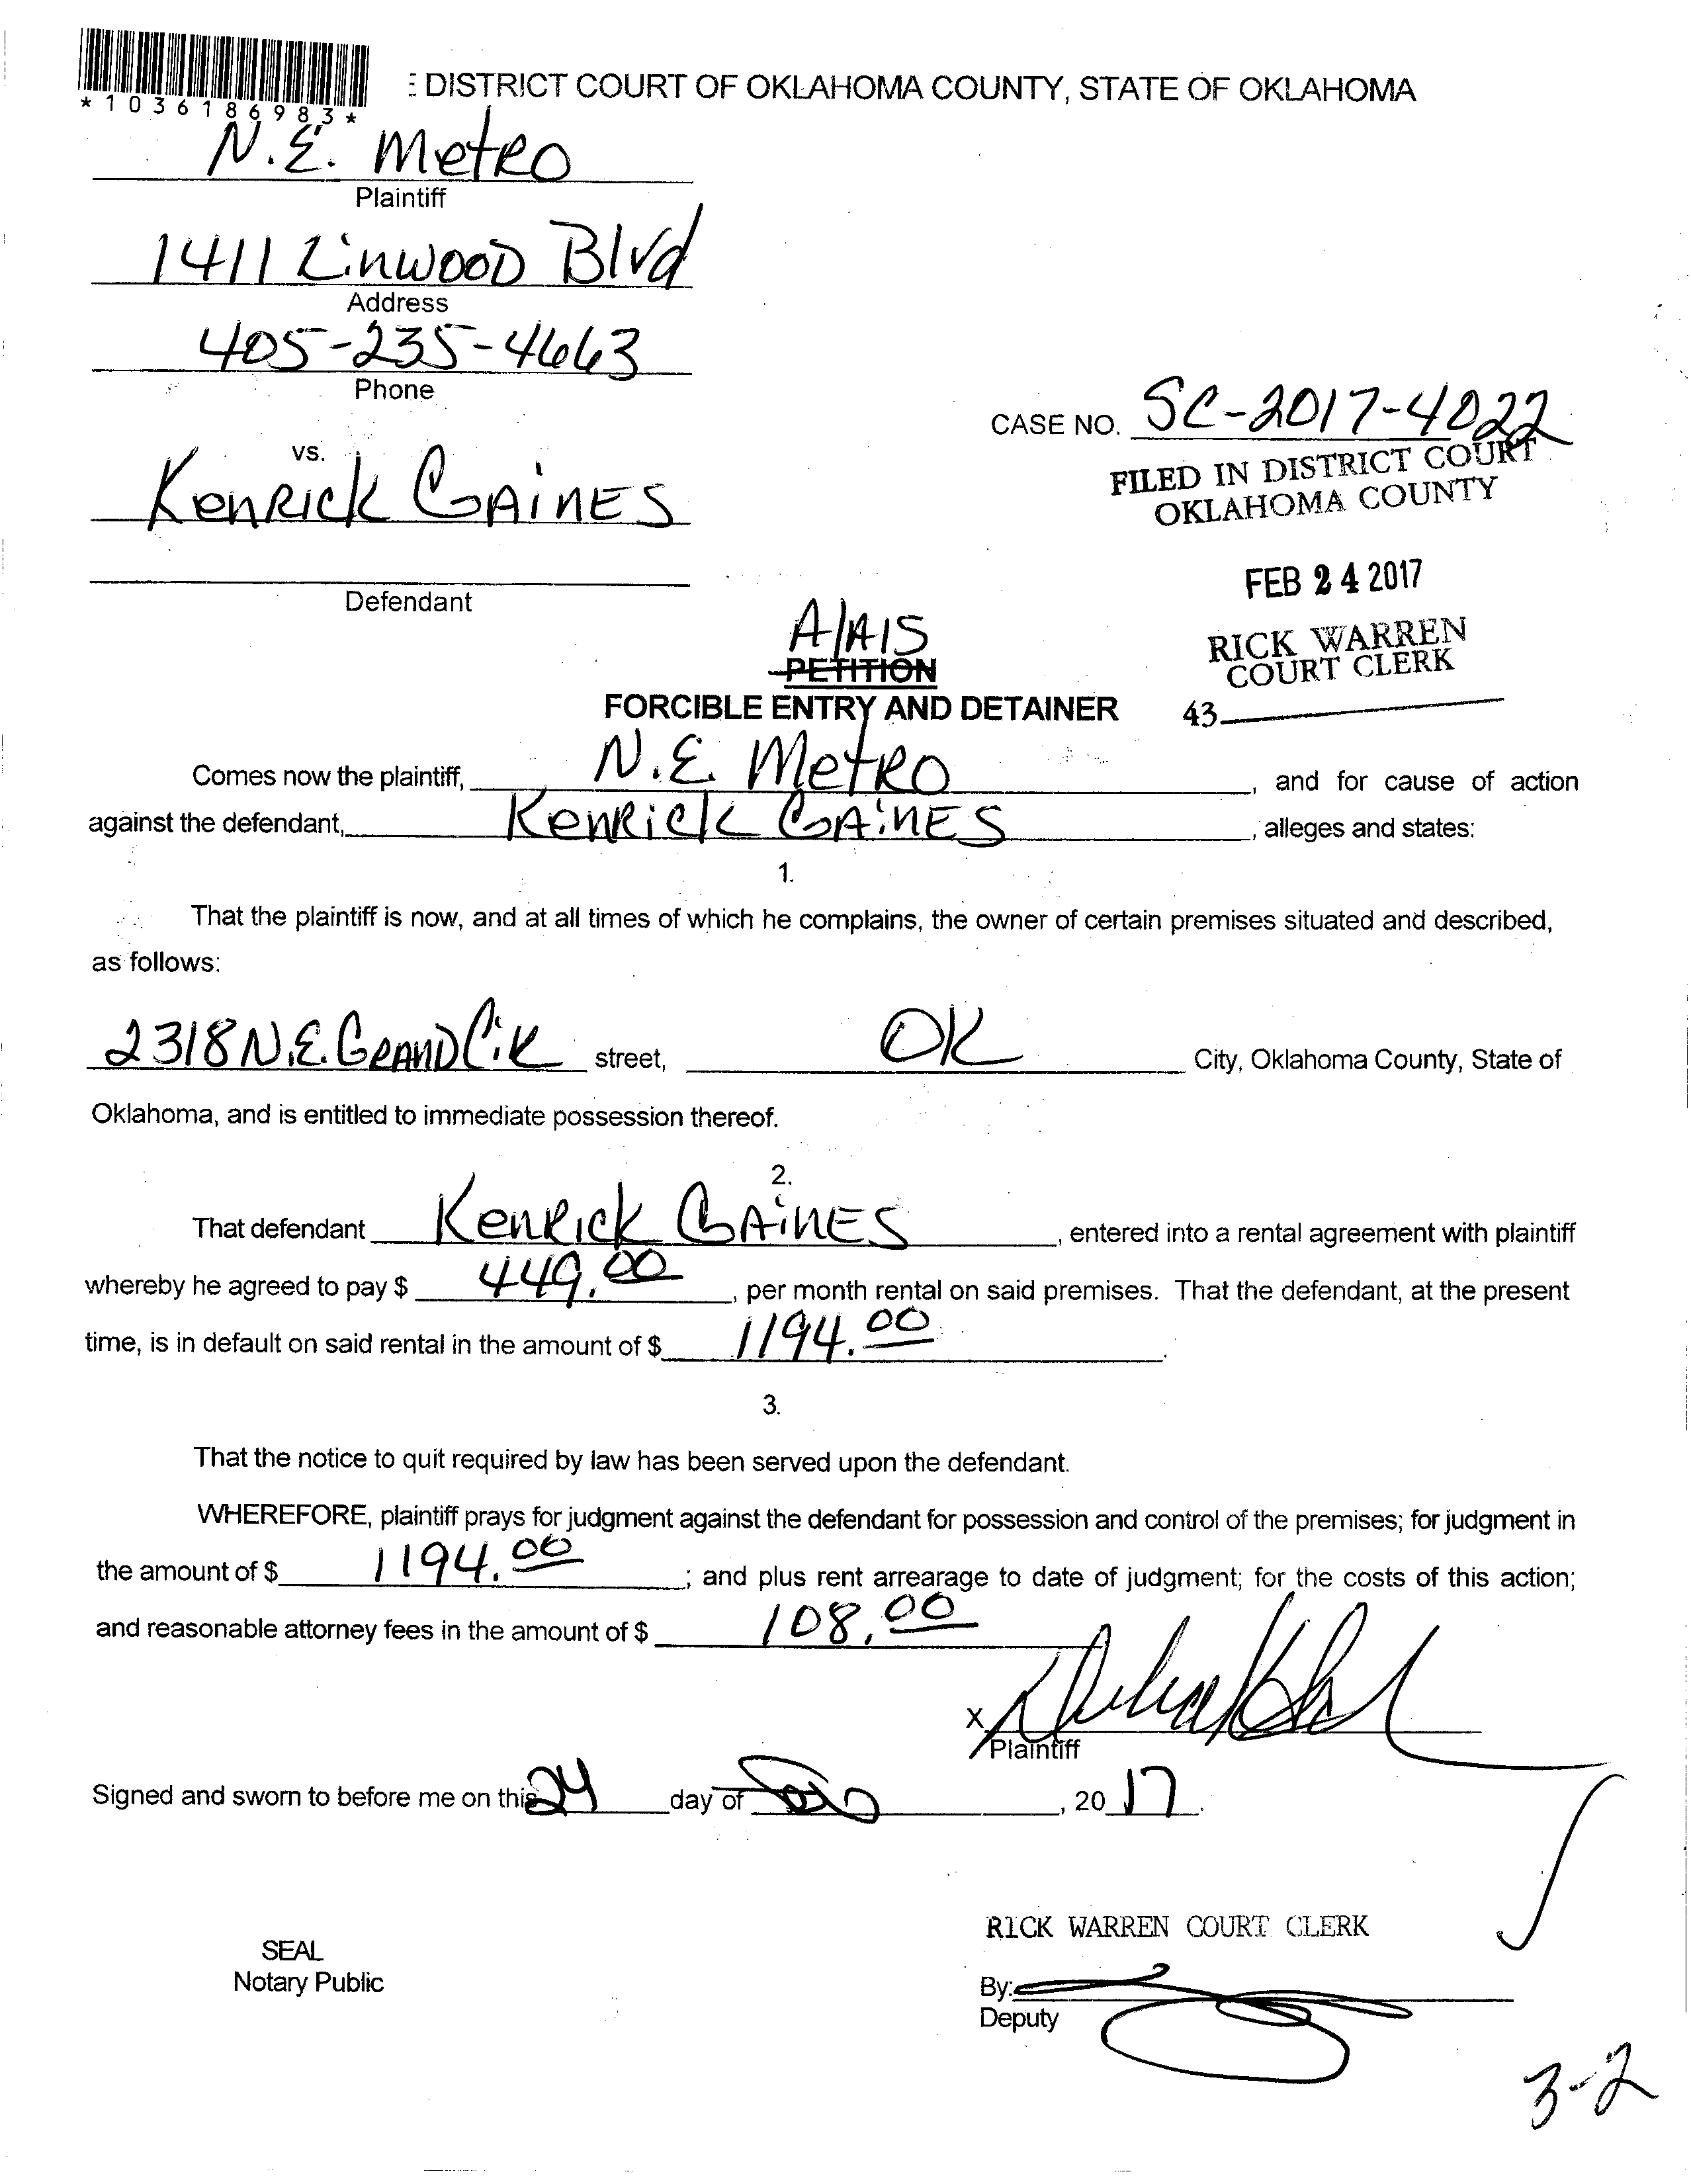 *1036186983*
: DISTRICT COURT OF OKLAHOMA COUNTY, STATE OF OKLAHOMA
N.E. Metro
Plaintiff
1411 Linwood Blvd
Address
405-235-4663
Phone
CASE NO. SC-2017-4022
vs.
Kenrick Gaines
FILED IN DISTRICT COURT
OKLAHOMA COUNTY
Defendant
FEB 24 2017
RICK WARREN
COURT CLERK
43
AlAIS
PETITION
FORCIBLE ENTRY AND DETAINER
Comes now the plaintiff, N.E. Metro, and for cause of action
against the defendant, Kenrick Gaines, alleges and states:
1.
That the plaintiff is now, and at all times of which he complains, the owner of certain premises situated and described,
as follows:
2318 N.E. Grand Cir street, OK City, Oklahoma County, State of
Oklahoma, and is entitled to immediate possession thereof.
2.
That defendant Kenrick Gaines, entered into a rental agreement with plaintiff
whereby he agreed to pay $ 449.00, per month rental on said premises. That the defendant, at the present
time, is in default on said rental in the amount of $ 1194.00.
3.
That the notice to quit required by law has been served upon the defendant.
WHEREFORE, plaintiff prays for judgment against the defendant for possession and control of the premises; for judgment in
the amount of $ 1194.00; and plus rent arrearage to date of judgment; for the costs of this action;
and reasonable attorney fees in the amount of $ 108.00
X
Plaintiff
Signed and sworn to before me on this 24 day of , 2017.
RICK WARREN COURT CLERK
SEAL
Notary Public
By:
Deputy
3-2